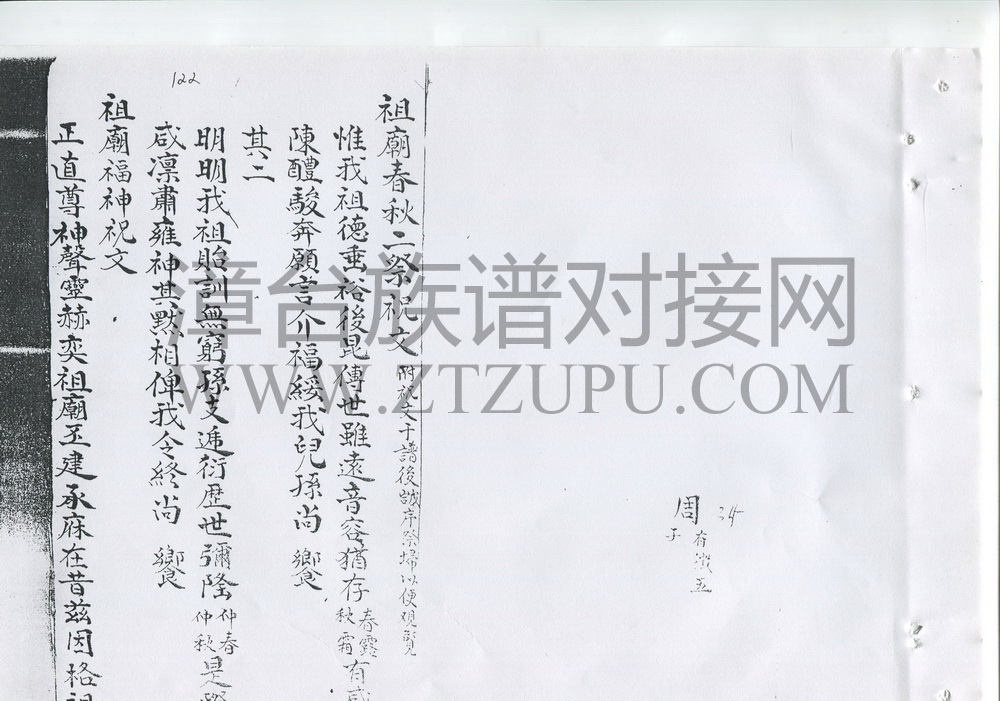 122
周 34
子 有 五
祖廟春秋二祭祝文 附祝文于譜後 序祭 以便观覧
惟我祖德垂裕後昆傳世雖遠音容猶存 春露 秋霜 有感
陳醴駿奔願言介福綏我兒孫尚 饗
其二
明明我祖貽訓無窮孫支遞衍歷世彌隆 仲春 仲秋 是
咸凛肅雍神其黙相俾我令終尚 饗
祖廟福神祝文
正直尊神聲靈赫奕祖廟玊建承庥在昔兹因格祖
漳台族谱对接网
WWW.ZTZUPU.COM